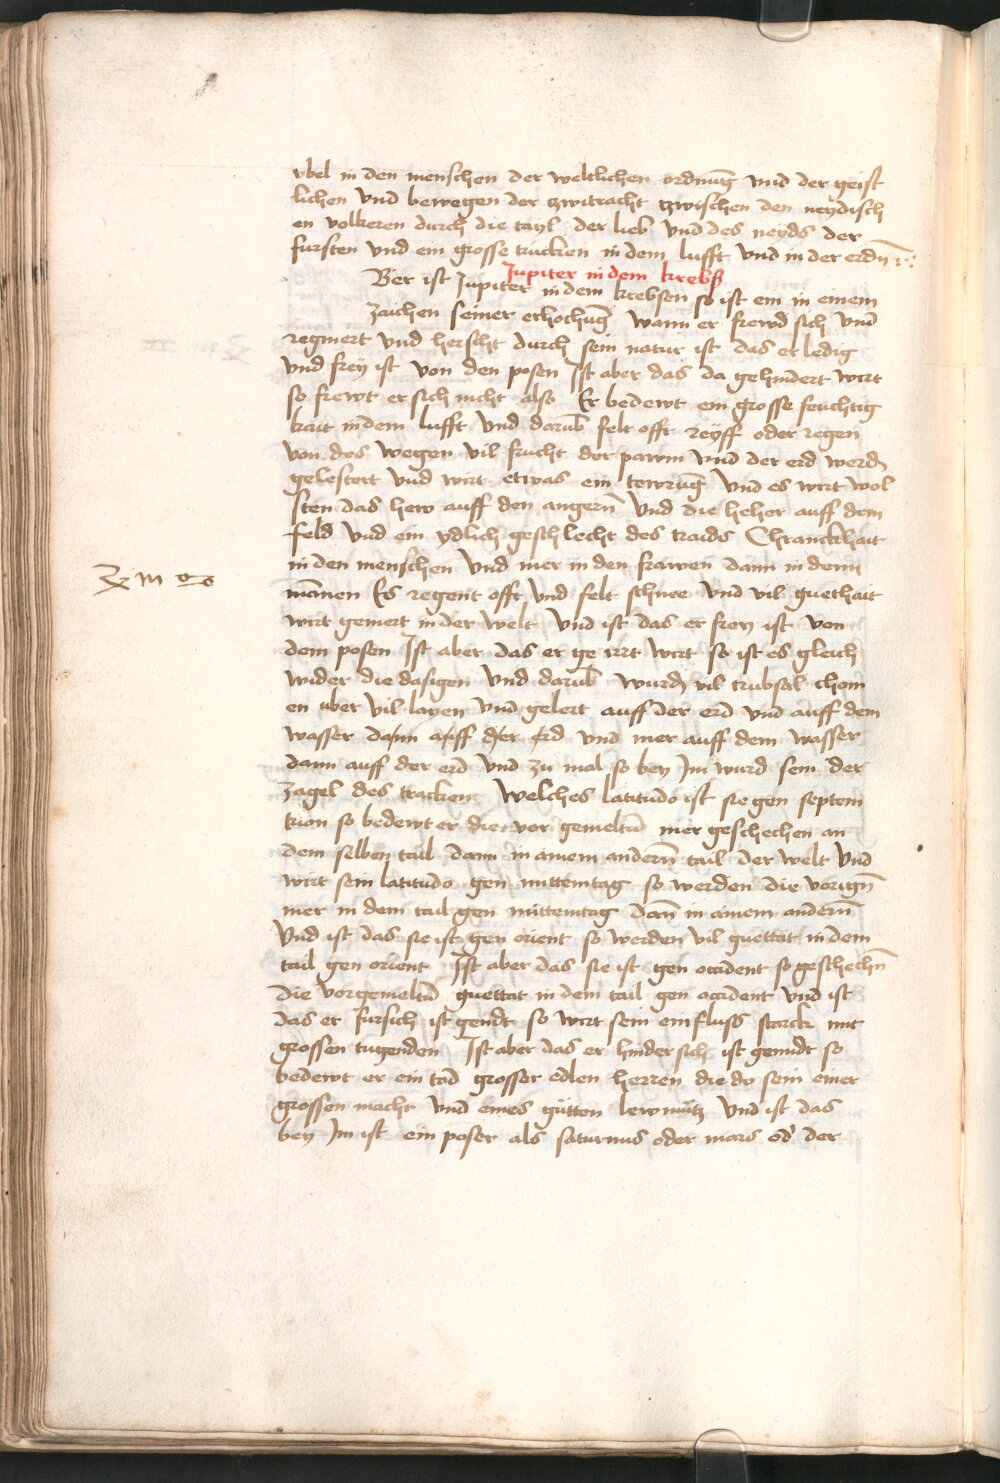 vbel in den menschen der weltlichen ordnung vnd der geist
lichen vnd bewegen der zwitracht tzwischen den neydisch
en volkeren durch die tayl der lieb vnd des neyds der
fursten vnd ein grosse trucken in dem lufft vnd in der erdn
Jupiter in dem krebß
Ber ist Jupiter in dem krebsen so ist em in einem
zaichen seiner erhochung wann er frewd sich vnd
regniert vnd herscht durch sein natur ist das er ledig
vnd frey ist von den posen Jst aber das da gehindert wirt
so frewt er sich nicht also Er bedewt ein grosse feuchtig
kait in dem lufft vnd darub felt offt reyff oder regen
von des wegen vil frucht der pawm vnd der erd werdn
gelestert vnd wirt etwas ein tewrung vnd es wirt wol
sten das hew auff den angern vnd die heher auff dem
feld vnd ein ydlich geschlecht des traids Chranckhait
in den menschen vnd mer in den frawen dann in denn
mannen Es regent offt vnd felt schnee vnd vil guethait
wirt gemert in der welt vnd ist das er frey ist von
dem posen Jst aber das er ge irrt wirt so ist es gleich
wider die dasigen vnd darub wurdn vil trubsel chom
en uber vil layen vnd gelert auff der erd vnd auff dem
wasser dann auff der erd vnd mer auff dem wasser
dann auff der erd vnd zu mal so bey Jm wurd sein der
zagel des tracken Welches latitudo ist sie gen septem
trion so bedewt er die vor gemeltn mer geschechen an
dem selben tail dann in ainem andern tail der welt vnd
wirt sein latitudo gen mittemtag so werden die vorign
mer in dem tail gen mittemtag dann in ainem andern
Vnd ist das sie ist gen orient so werden vil guettat in dem
tail gen orient Jst aber das sie ist gen occident so geschechn
die vorgemeltn guettat in dem tail gen occident vnd ist
das er fursich ist gendt so wirt sein einfluss starck mit
grossen tugenden Jst aber das er hindersich ist genndt so
bedewt er ein tod grosser edlen herren die do sein einer
grossen macht vnd eines gutten lewmutz vnd ist das
bey Jm ist ein poser als saturnus oder mars od der